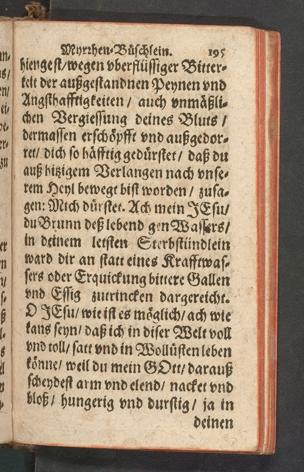 Myrrhen-Büschlein. 195
hiengest/wegen vberflüssiger Bitter-
keit der außgestandnen Peynen vnd
Angsthafftigkeiten / auch vnmäßli-
chen Vergiessung deines Bluts /
dermassen erschöpfft vnd außgedor-
ret/ dich so häfftig gedürstet / daß du
auß hizigem Verlangen nach vnse-
rem Heyl bewegt bist worden / zusa-
gen: Mich dürstet. Ach mein JEsu/
du Brunn deß lebendigen Wassers/
in deinem letsten Sterbstündlein
ward dir an statt eines Krafftwas-
sers oder Erquickung bittere Gallen
vnd Essig zutrincken dargereicht.
O JEsu/ wie ist es möglich/ ach wie
kans seyn/ daß ich in diser Welt voll
vnd toll/ satt vnd in Wollüsten leben
könne/ weil du mein GOtt/ darauß
scheydest arm vnd elend/ nacket vnd
bloß / hungerig vnd durstig / ja in
deinen